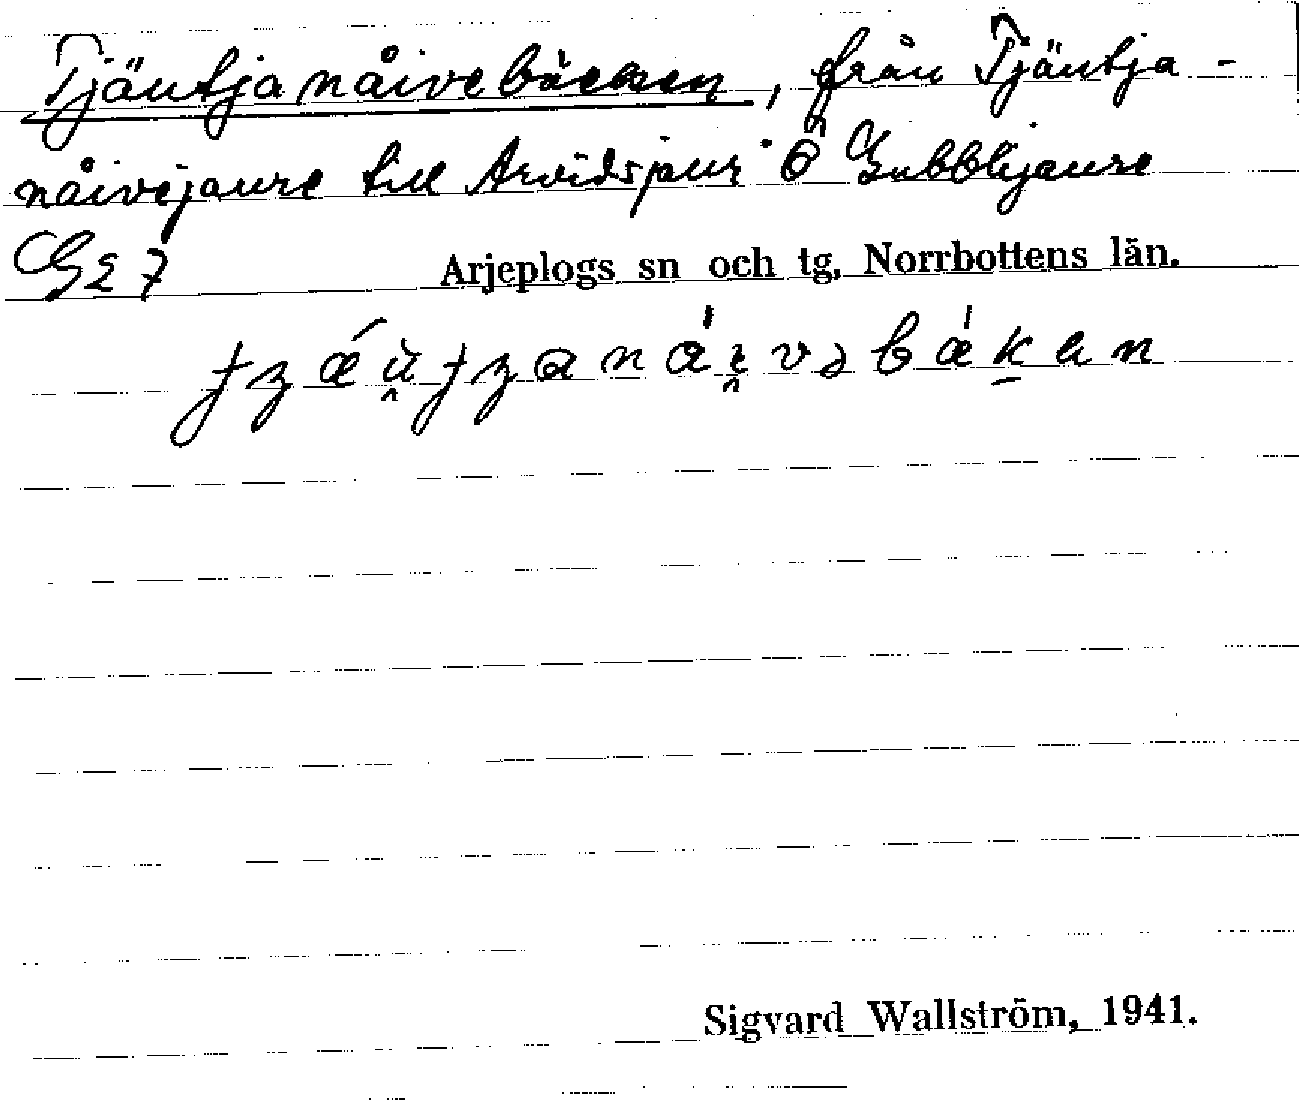 Tjäutjanåivebäcken, från Tjäutja-
nåivejaure till Arvidsjaur Ö Gubblijaure
Ge 7 Arjeplogs sn och tg, Norrbottens län.
Sigvard Wallström, 1941.